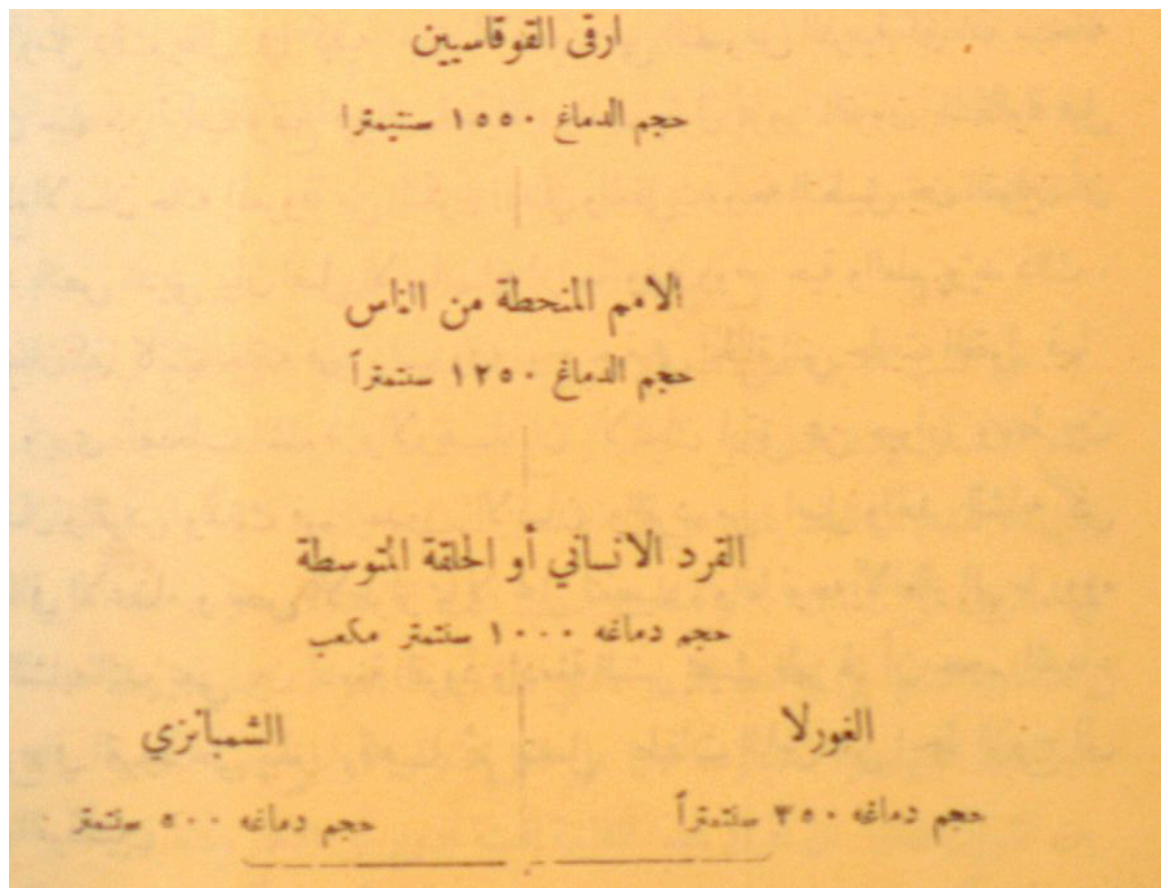 ارقى القوقاسيين
حجم الدماغ ١٥٥٠ سنتيمترا
الامم المنحطة من الناس
حجم الدماغ ١٢٥٠ سنتمتراً
القرد الانساني أو الحلقة المتوسطة
حجم دماغه ١٠٠٠ سنتمتر مكعب
الغورلا
الشمبانزي
حجم دماغه ٣٥٠ سنتمتراً
حجم دماغه ٥٠٠ سنتمتر